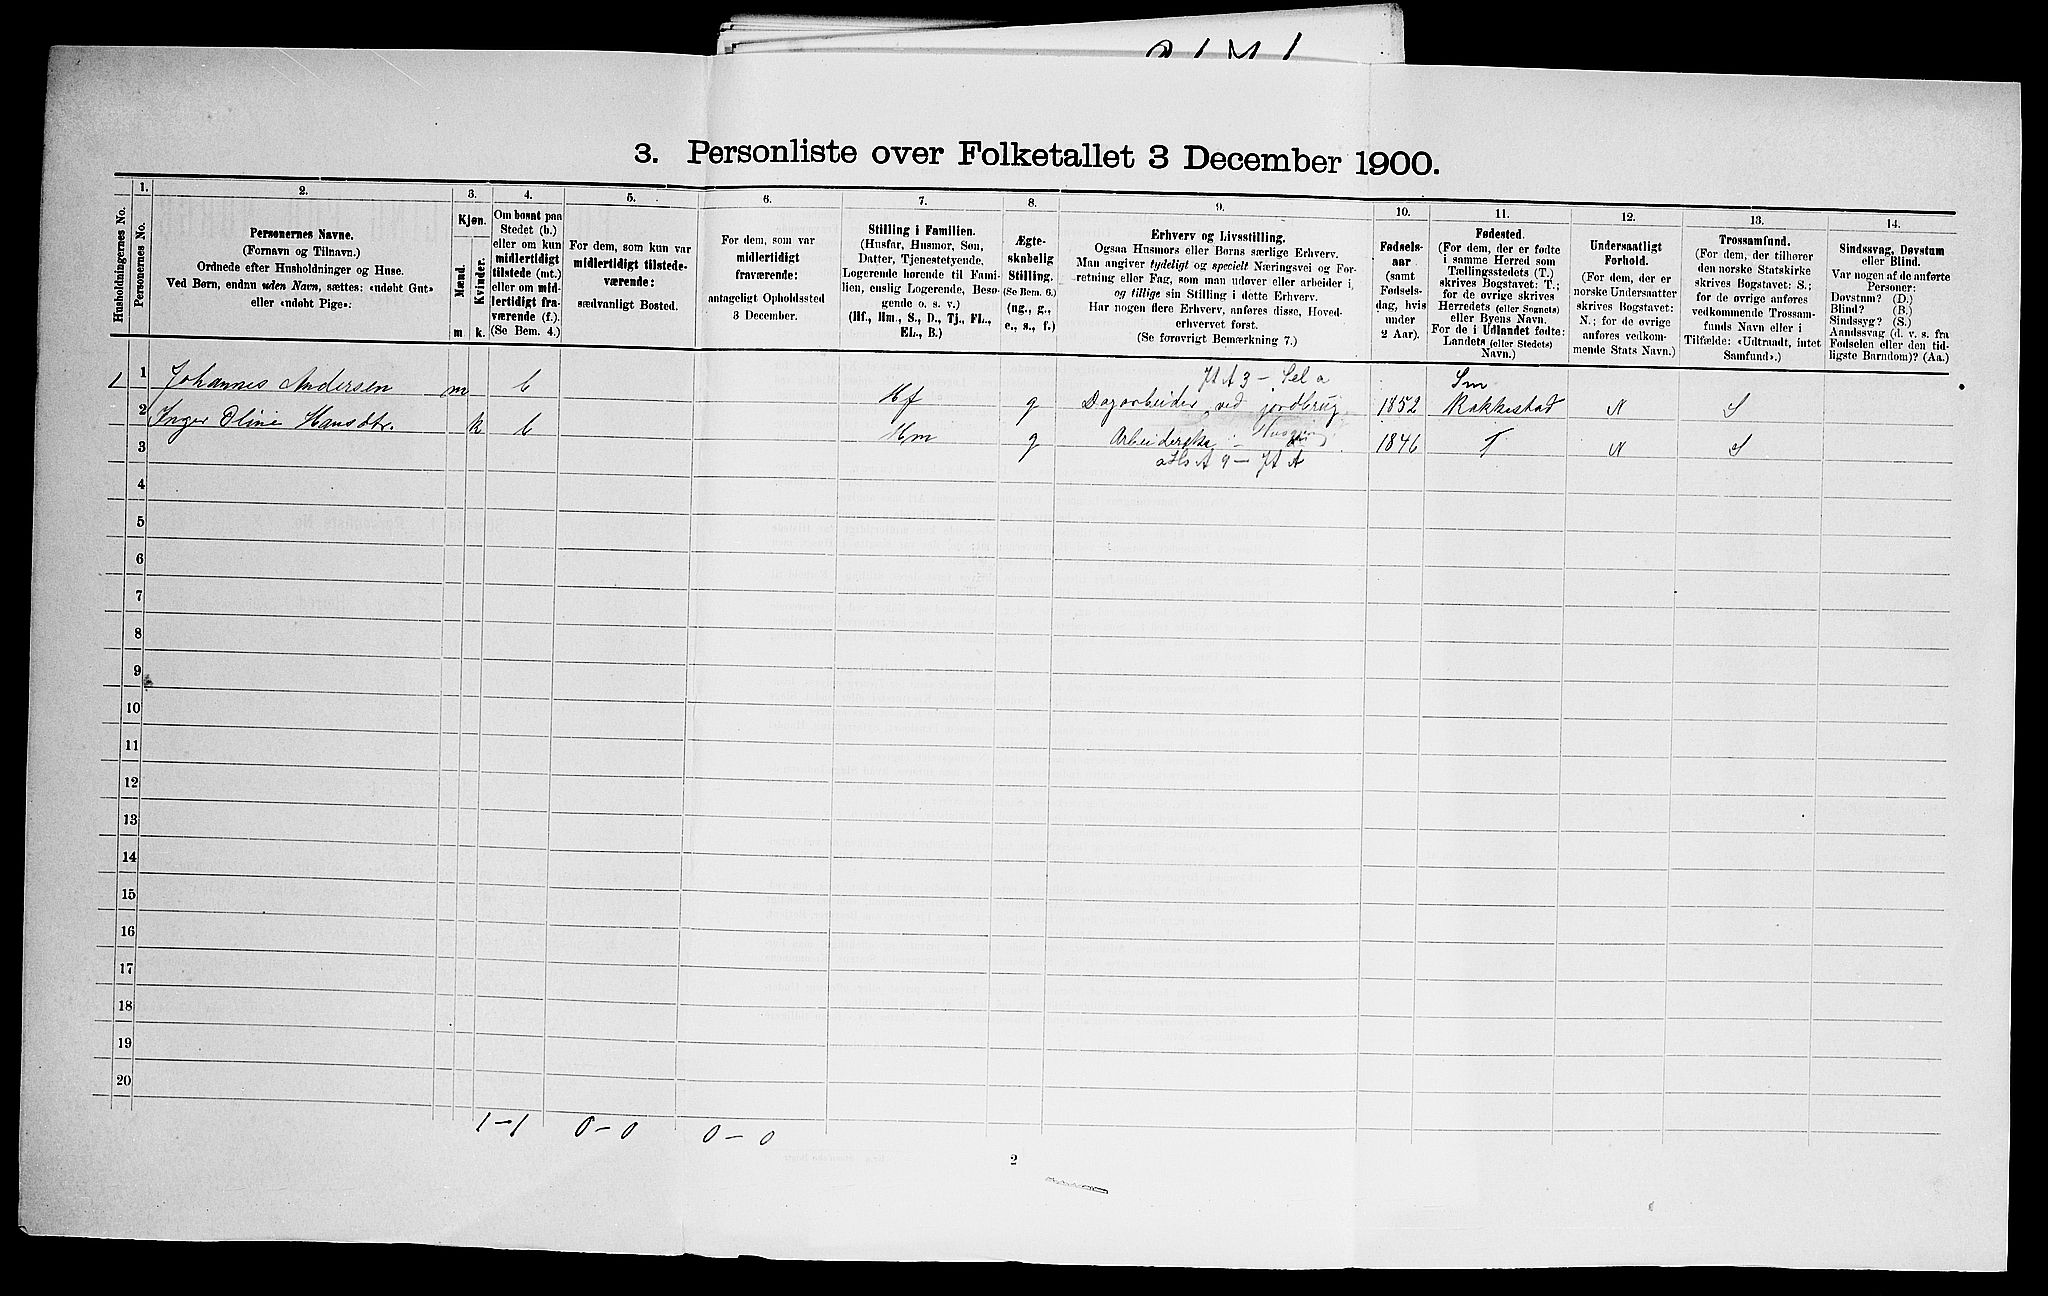 3. Personliste over Folketallet 3 December 1900.
Husholdningernes No.
1.
Personernes No.
2.
Personernes Navne.
(Fornavn og Tilnavn.)
Ordnede efter Husholdninger og Huse.
Ved Børn, endnu uden Navn, sættes: «udøbt Gut»
eller «udøbt Pige».
3.
Kjøn.
Mænd.
Kvinder.
m. k.
4.
Om bosat paa
Stedet (b.)
eller om kun
midlertidigt
tilstede (mt.)
eller om mid-
lertidigt fra-
værende (f.).
(Se Bem. 4.)
5.
For dem, som kun var
midlertidigt tilstede-
værende:
sædvanligt Bosted.
6.
For dem, som var
midlertidigt
fraværende:
antageligt Opholdssted
3 December.
7.
Stilling i Familien.
(Husfar, Husmor, Søn,
Datter, Tjenestetyende,
Logerende hørende til Fami-
lien, enslig Logerende, Besø-
gende o. s. v.)
(Hf., Hm., S., D., Tj., FL.,
EL., B.)
8.
Ægte-
skabelig
Stilling.
(Se Bem. 6.)
(ug., g.,
e., s., f.)
9.
Erhverv og Livsstilling.
Ogsaa Husmors eller Børns særlige Erhverv.
Man angiver tydeligt og specielt Næringsvei og For-
retning eller Fag, som man udøver eller arbeider i,
og tillige sin Stilling i dette Erhverv.
Har nogen flere Erhverv, anføres disse, Hoved-
erhvervet først.
(Se forøvrigt Bemærkning 7.)
10.
Fødsels-
aar
(samt
Fødsels-
dag, hvis
under
2 Aar).
11.
Fødested.
(For dem, der er fødte
i samme Herred som
Tællingsstedets (T.)
skrives Bogstavet: T.;
for de øvrige skrives
Herredets (eller Sognets)
eller Byens Navn.
For de i Udlandet fødte:
Landets (eller Stedets)
Navn.)
12.
Undersaatligt
Forhold.
(For dem, der er
norske Undersaatter
skrives Bogstavet:
N.; for de øvrige
anføres vedkom-
mende Stats Navn.)
13.
Trossamfund.
(For dem, der tilhører
den norske Statskirke
skrives Bogstavet: S.;
for de øvrige anføres
vedkommende Trossam-
funds Navn eller i
Tilfælde: «Udtraadt, intet
Samfund».)
14.
Sindssvag, Døvstum
eller Blind.
Var nogen af de anførte
Personer:
Døvstum? (D.)
Blind? (B.)
Sindssyg? (S.)
Aandssvag (d. v. s. fra
Fødselen eller den tid-
ligste Barndom)? (Aa.)
Jd A 3 - Sel a Sm
1 1 Johannes Andersen m b Hf g Dagarbeider ved jordbrug 1852 Rakkestad N S
2 Inger Oline Hansdtr. k b Hm g Arbeiderske 1846 T N S
3
4
5
6
7
8
9
10
11
12
13
14
15
16
17
18
19
20
1-1 0-0 0-0
2